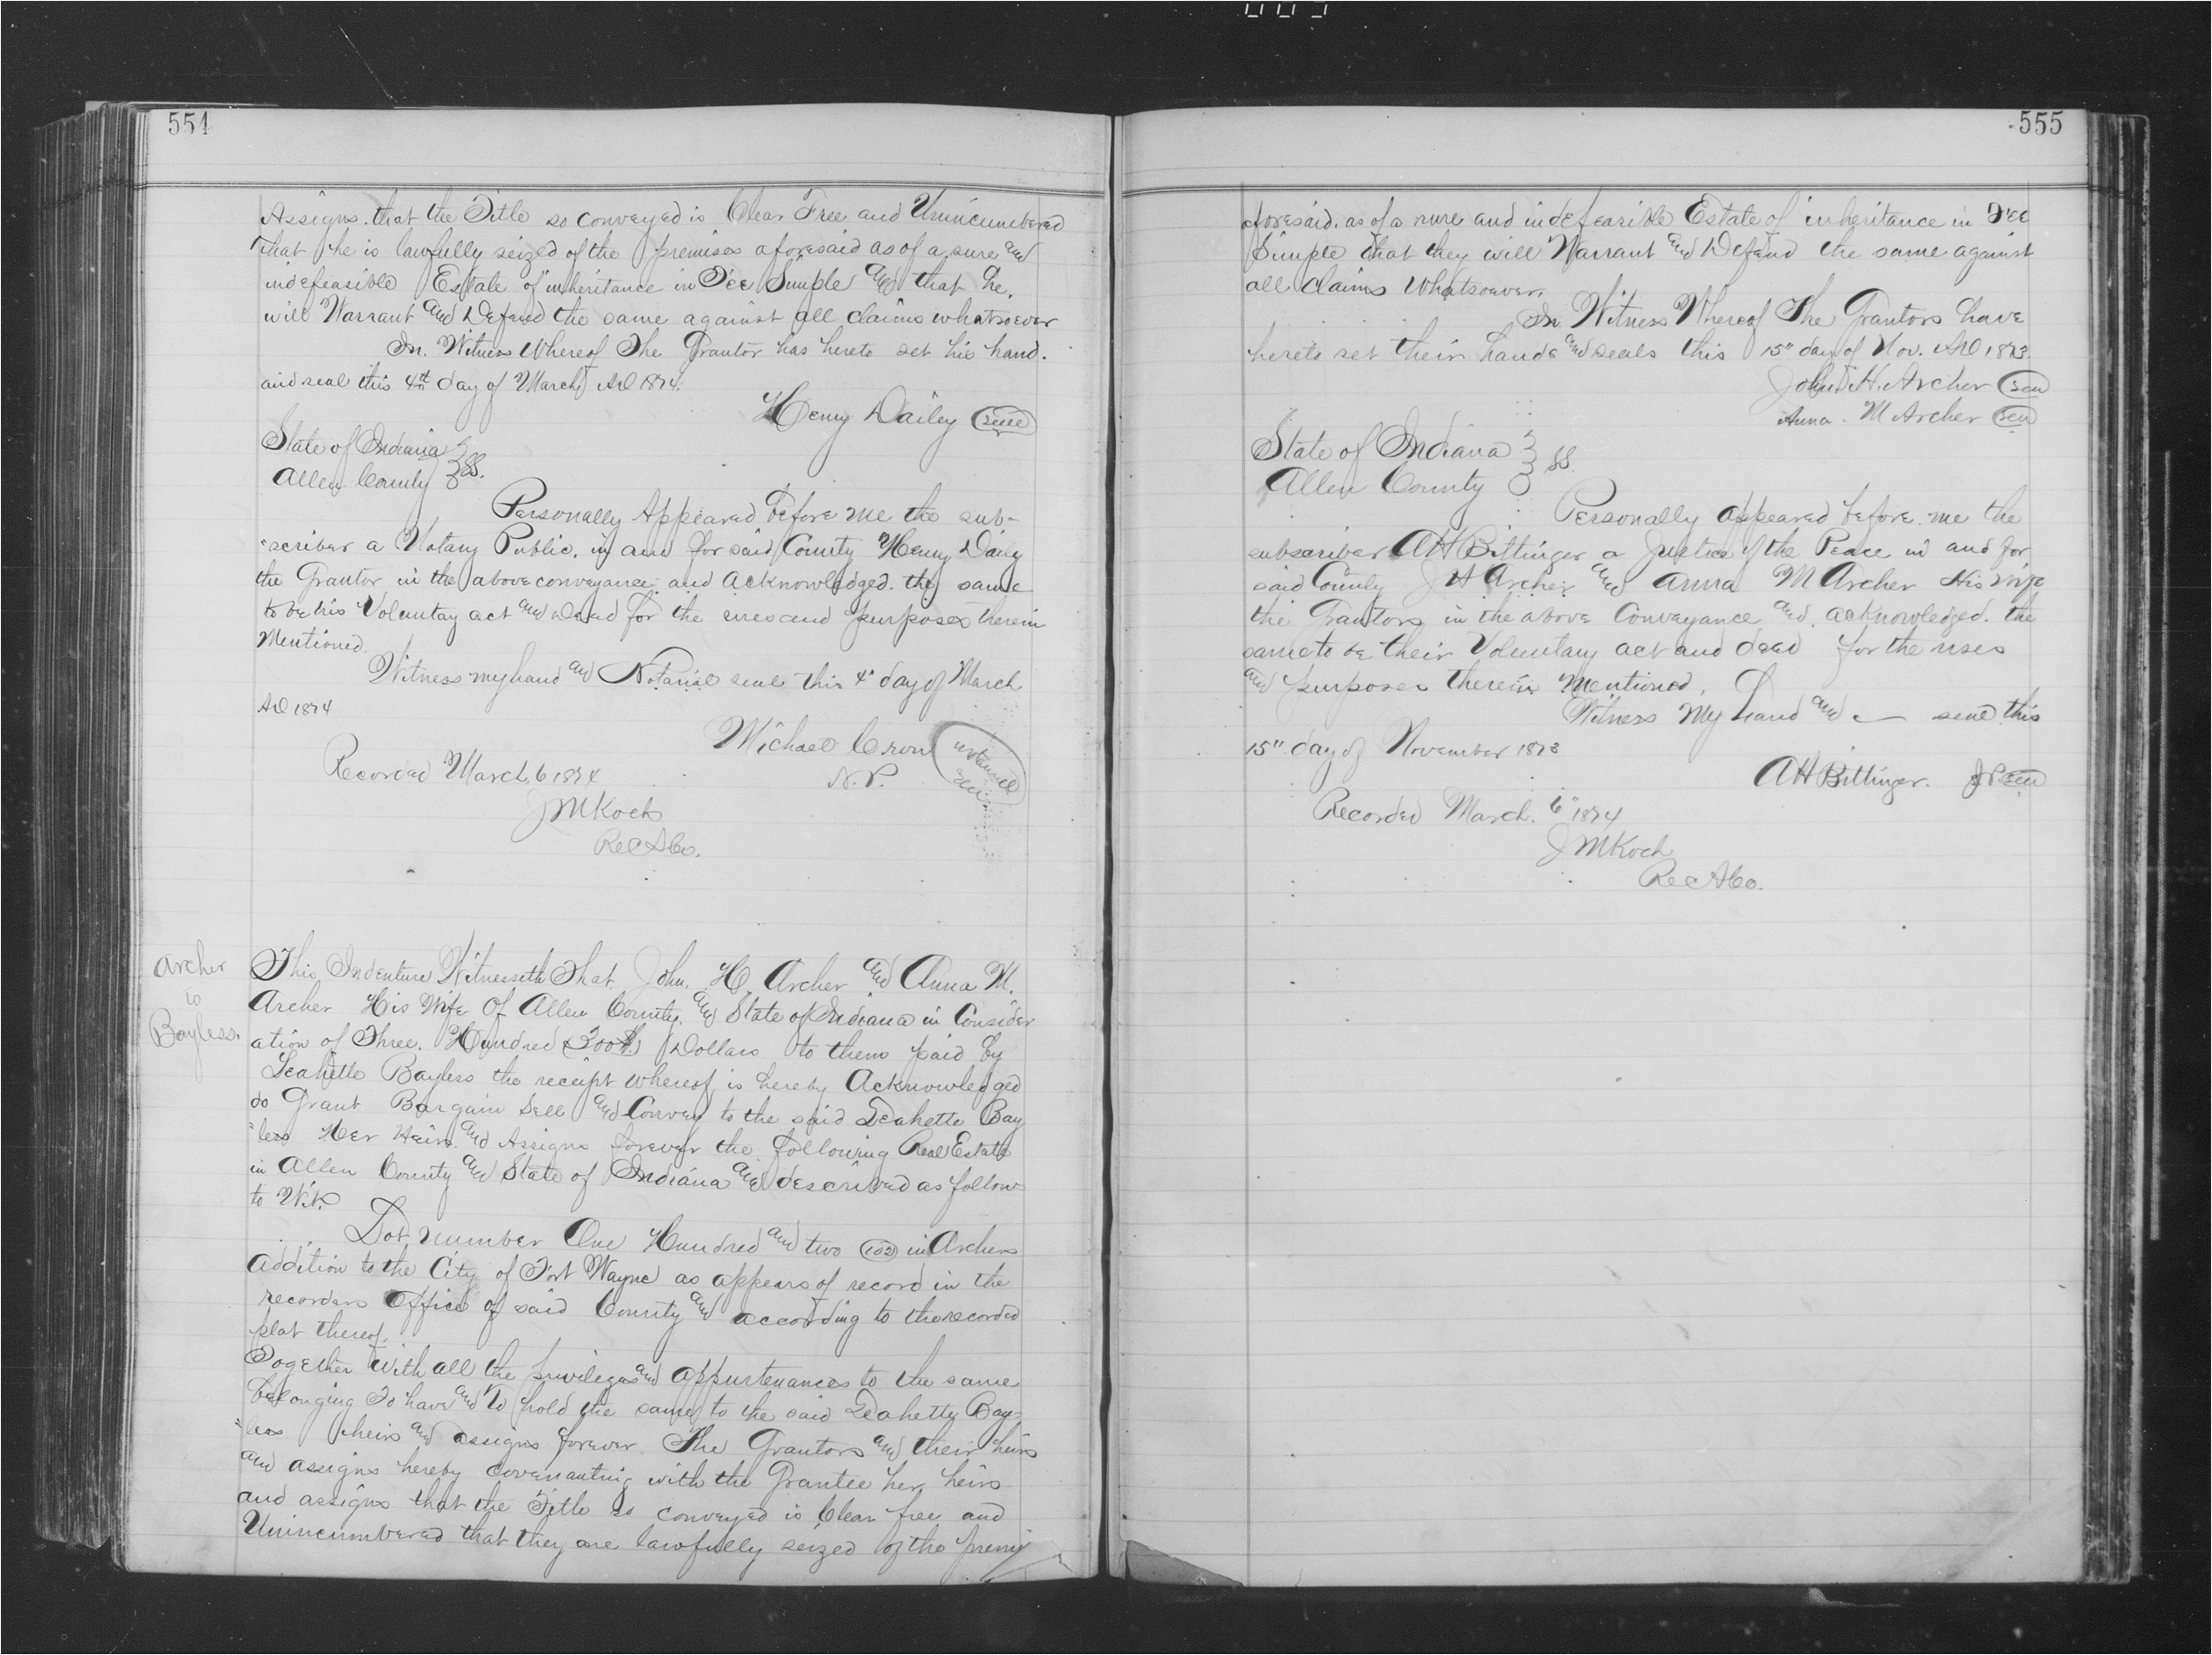 554
Assigns. that the Title so conveyed is Clear Free and Unincumbered
that he is lawfully seized of the premises aforesaid as of a sure and
indefeasible Estate of inheritance in Fee Simple and that he.
will Warrant and Defend the same against all claims whatsoever
In. Witness Whereof The Grantor has hereto set his hand.
and seal this 4th day of March AD 1874.
Henry Dailey Seal
State of Indiana
Allen County SS.
Personally Appeared before me the sub-
scriber a Notary Public. in and for said County Henry Daily
the Grantor in the above conveyance and acknowledged. the same
to be his Voluntay act and Deed for the uses and purposes therein
Mentioned.
Witness my hand and Notarial seal this 4" day of March
AD 1874
Michael Cron
N. P.
Notarial
Seal
Recorded March. 6 1874
J M Koch
Rec A Co.
Archer
to
Bayless.
This Indenture Witnesseth That John. H. Archer and Anna M.
Archer His Wife Of Allen County. and State of Indiana in Consider
ation of Three. Hundred (300$) Dollars to them paid by
Bayless the receipt whereof is hereby Acknowledged
do Grant Bargain Sell and Convey to the said Bay
"less Her Heirs. and Assigns forever the following Real Estate
in Allen County and State of Indiana and described as follow
to Wit.
Lot number One Hundred and two (102) in Archers
Addition to the City of Fort Wayne as appears of record in the
recorders Office of said County and according to the recorded
plat thereof.
Together With all the privileges and appurtenances to the same
belonging To have and to hold the same to the said Bay-
"less heirs and assigns forever. The Grantors and their heirs
and assigns hereby covenanting with the Grantee her heirs
and assigns that the Title so conveyed is Clear free and
Unincumbered that they are lawfully seized of the premi
555
aforesaid. as of a sure and indefeasible Estate of inheritance in Fee
Simple that they will Warrant and Defend the same against
all claims Whatsoever.
In Witness Whereof The Grantors have
hereto set their hands and seals this 15" day of Nov. AD 1873.
John H. Archer Seal
Anna. M Archer Seal
State of Indiana
Allen County SS.
Personally appeared before me the
subscriber A H Bittinger a Justice of the Peace in and for
said County J H Archer and Anna M Archer His wife
the Grantors in the above Conveyance and. acknowledged. the
same to be their Voluntary act and deed for the uses
and purposes therein Mentioned.
Witness My hand and — seal this
15" day of November 1873
A H Bittinger. J P Seal
Recorded March. 6" 1874
J M Koch
Rec A Co.